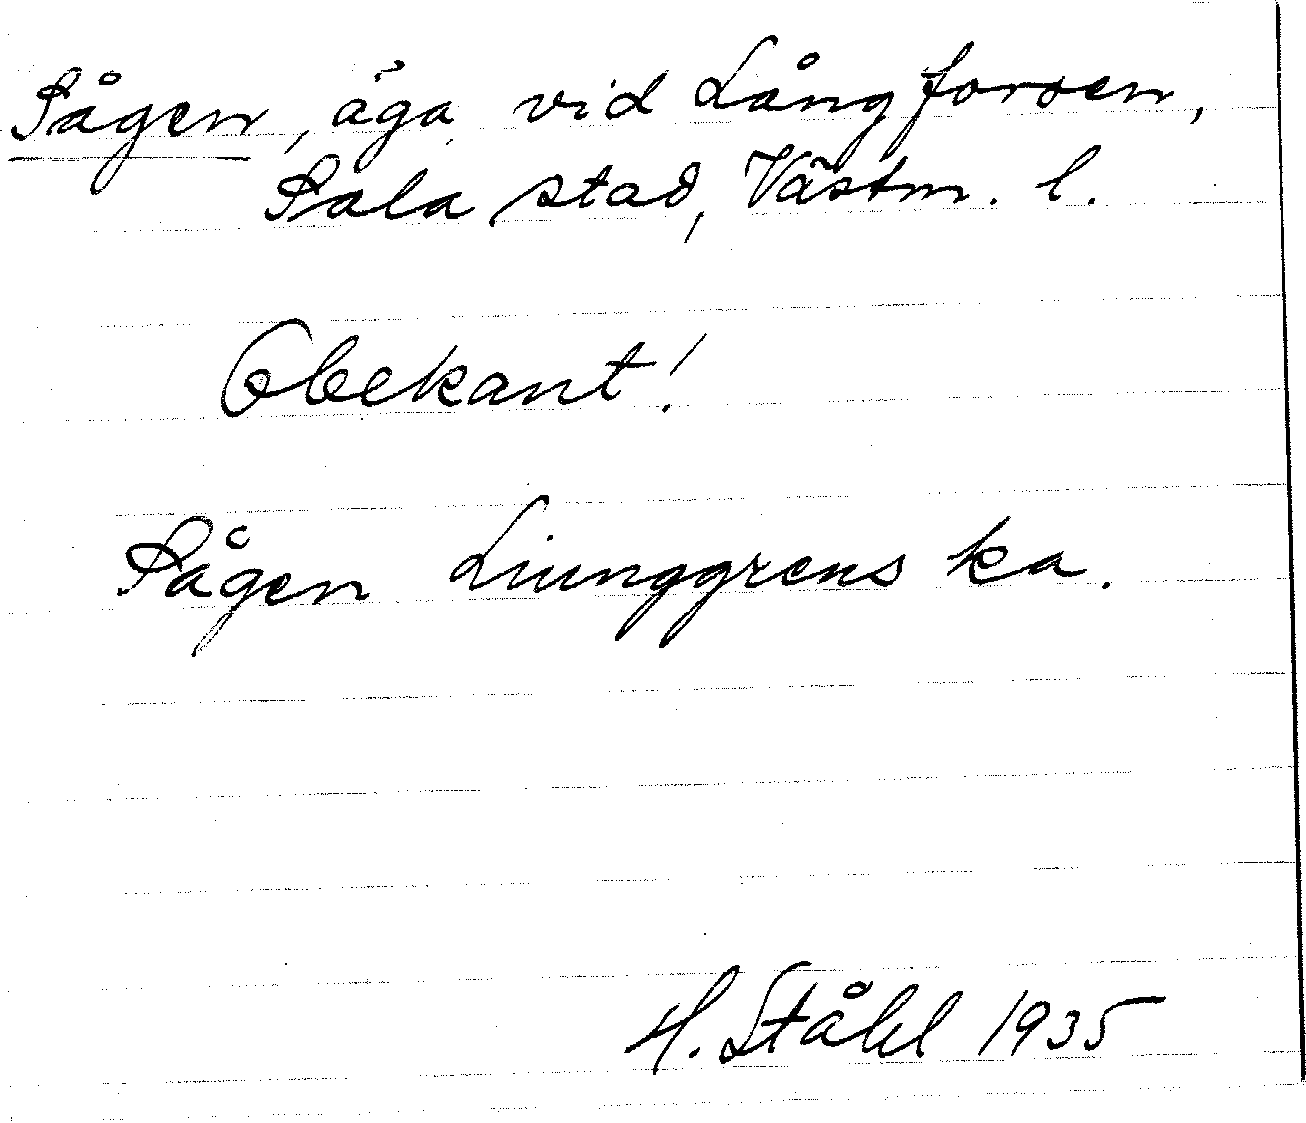 Sågen, äga vid Långforsen,
Sala stad, Västm. l.
Obekant!
Sågen Liunggrens ka.
H. Ståhl 1935